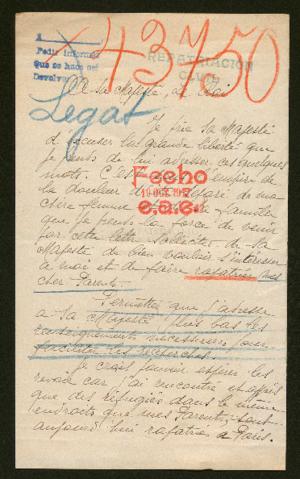 A
Pedir informe
Que se hace así
Devolver
43750
REPATRIACION
CIVIL
A Sa Majesté, le Roi
Legat
Je prie Sa Majesté
d'excuser la grande liberté que
je prends de lui adresser ces quelques
mots. C'est sous l'empire de
la douleur séparé de ma
chère femme famille
que je prends la force de venir
par cette lettre solliciter de Sa
Majesté de bien vouloir s'intéresser
à moi et de faire rapatrier mes
cher Parents.
Fecho
19 OCT. 1917
e.a.e.
Permettez que j'adresse
à Sa Majesté plus bas les
renseignements nécessaires pour
faciliter les recherches.
Je crois pouvoir espérer les
revoir car j'ai rencontré et appris
que des réfugiés dans le même
endroits que mes Parents sont
aujourd'hui rapatriés à Paris.